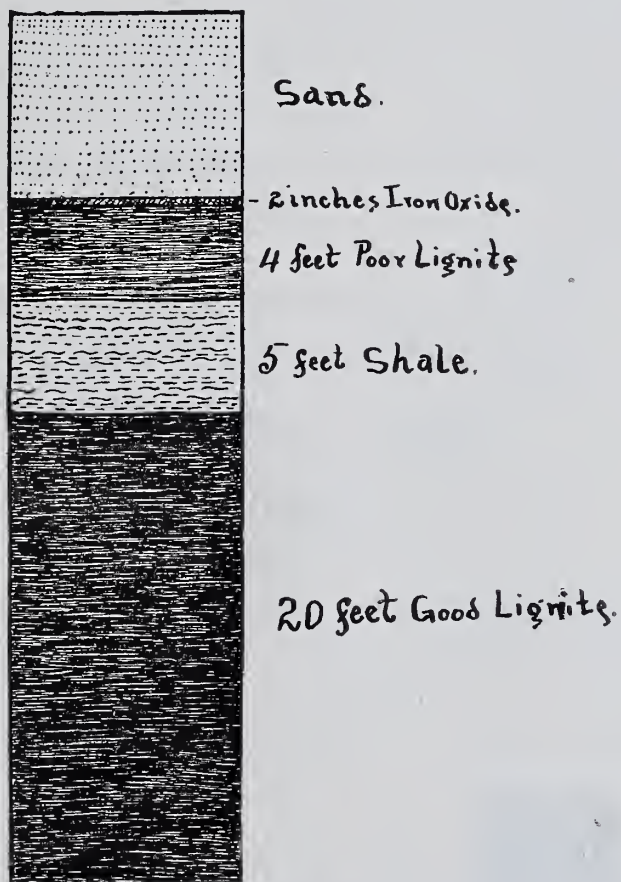 Sand.
- 2 inches Iron Oxide.
4 feet Poor Lignite
5 feet Shale.
20 feet Good Lignite.